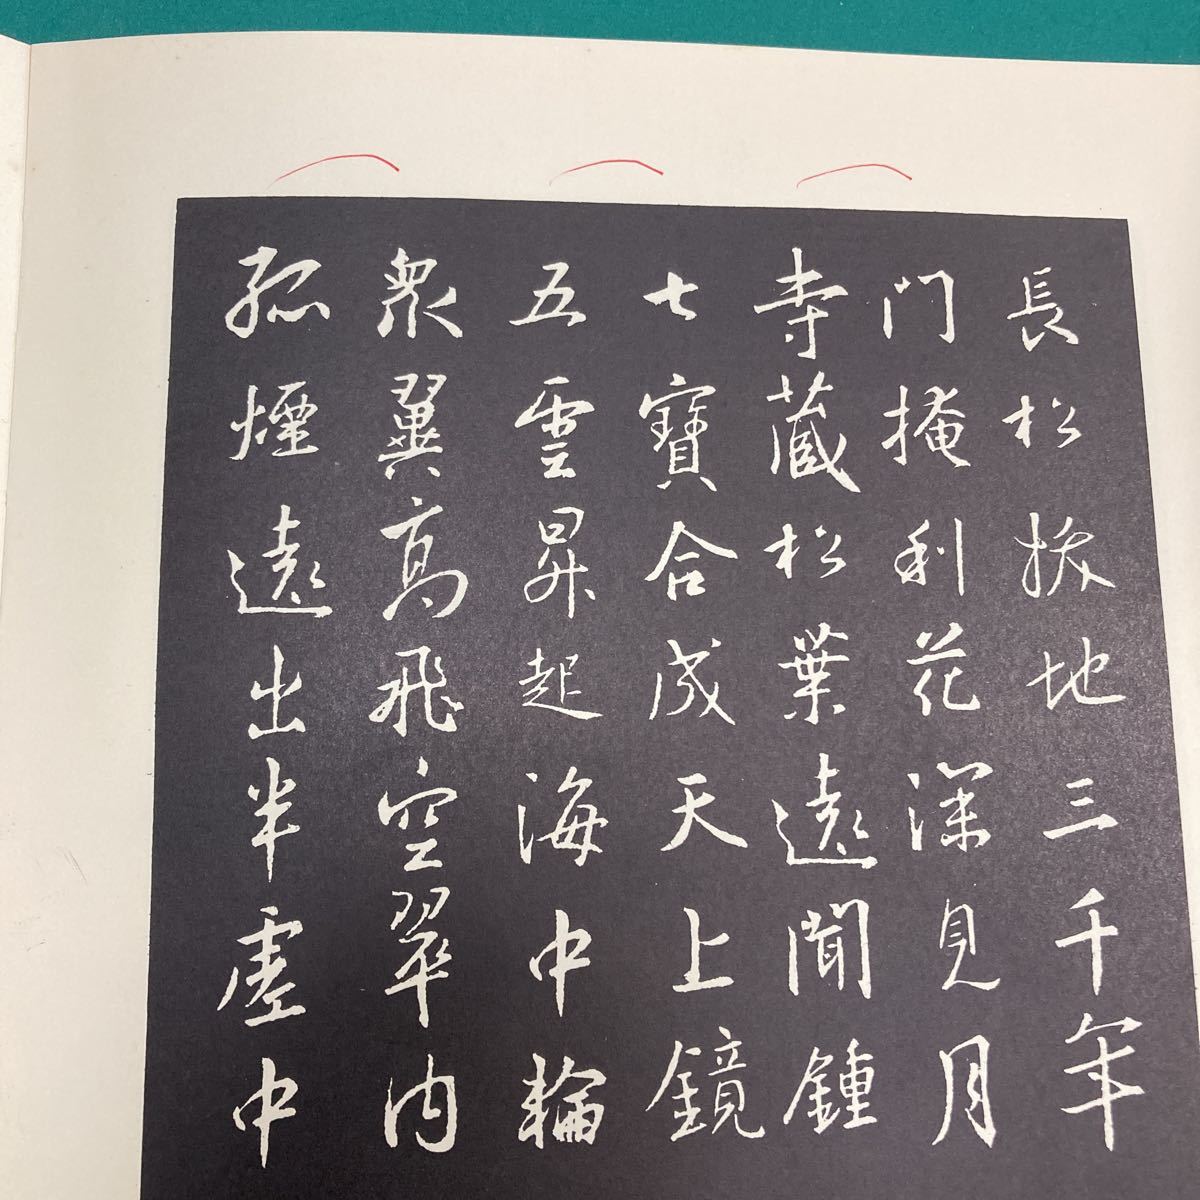 長松拔地三千年
門掩利花深見月
寺藏松葉遠聞鍾
七寶合成天上鏡
五雲昇起海中輪
衆翼高飛空翠內
孤煙遠出半虛中